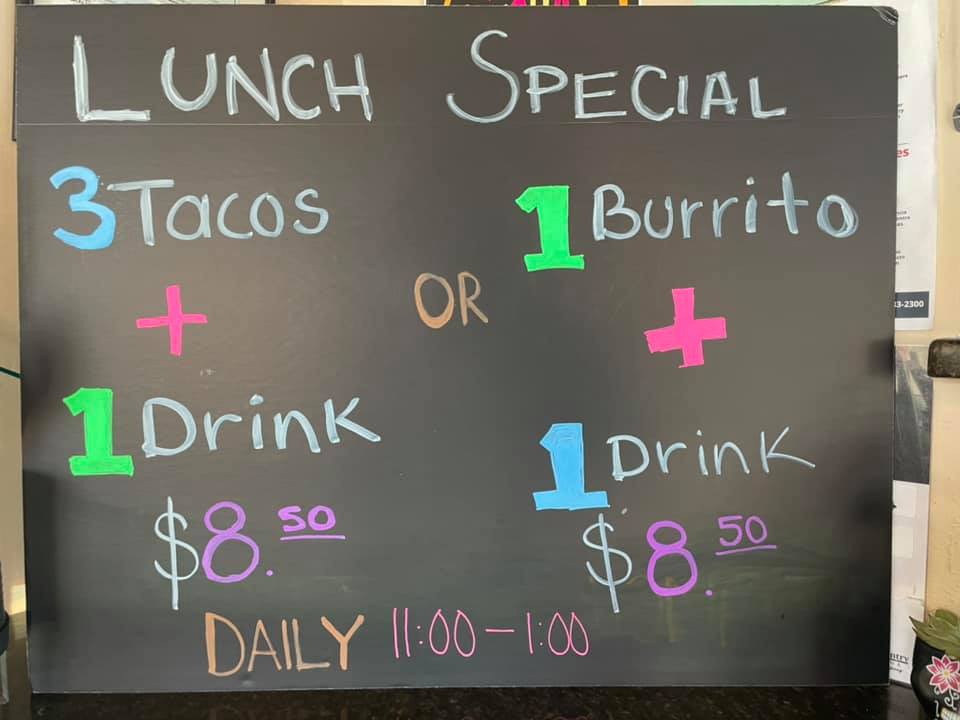 LUNCH SPECIAL
3 Tacos
+
1 Drink
$8.50
OR
1 Burrito
+
1 Drink
$8.50
DAILY 11:00 - 1:00
3-2300